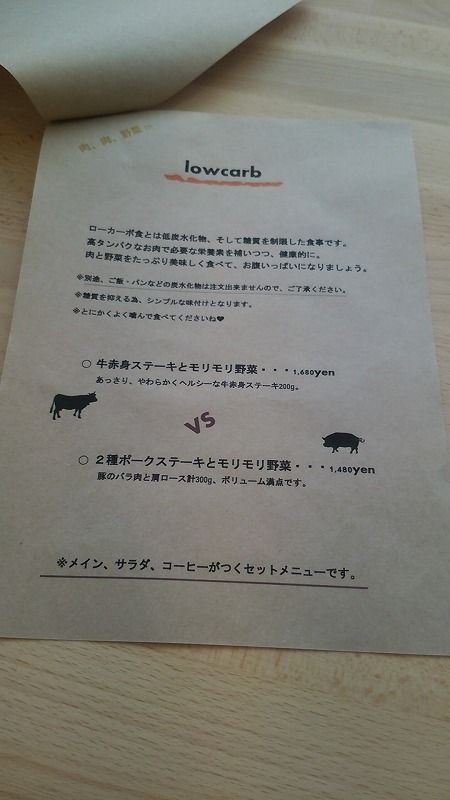 肉、肉、野菜〜
lowcarb
ローカーボ食とは低炭水化物、そして糖質を制限した食事です。
高タンパクなお肉で必要な栄養素を補いつつ、健康的に。
肉と野菜をたっぷり美味しく食べて、お腹いっぱいになりましょう。
※別途、ご飯・パンなどの炭水化物は注文出来ませんので、ご了承ください。
※糖質を抑える為、シンプルな味付けとなります。
※とにかくよく噛んで食べてくださいね♥
○ 牛赤身ステーキとモリモリ野菜・・・1,680yen
あっさり、やわらかくヘルシーな牛赤身ステーキ200g。
VS
○ 2種ポークステーキとモリモリ野菜・・・1,480yen
豚のバラ肉と肩ロース計300g、ボリューム満点です。
※メイン、サラダ、コーヒーがつくセットメニューです。